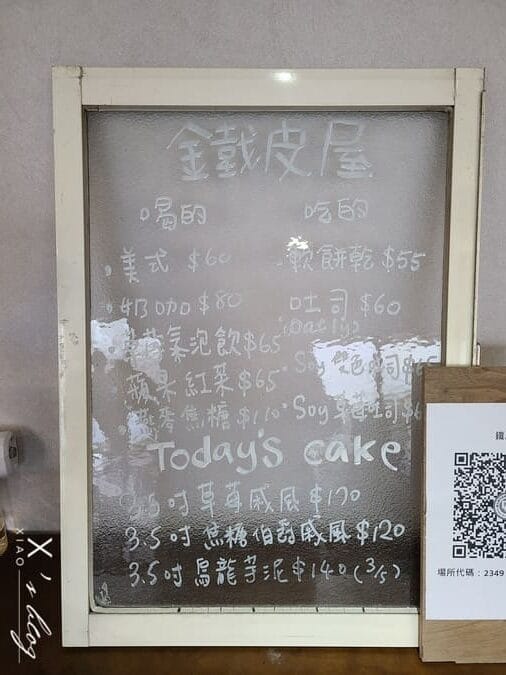 鐵皮屋
喝的
美式 $60
奶咖 $80
氣泡飲 $65
蘋果紅茶 $65
燕麥焦糖 $110
吃的
軟餅乾 $55
吐司 $60
Soy 雙色吐司
Soy 草莓吐司
Today's cake
3.5吋草莓戚風 $170
3.5吋焦糖伯爵戚風 $120
3.5吋烏龍芋泥 $140 (3/5)
場所代碼：2349
X's blog
XIAO